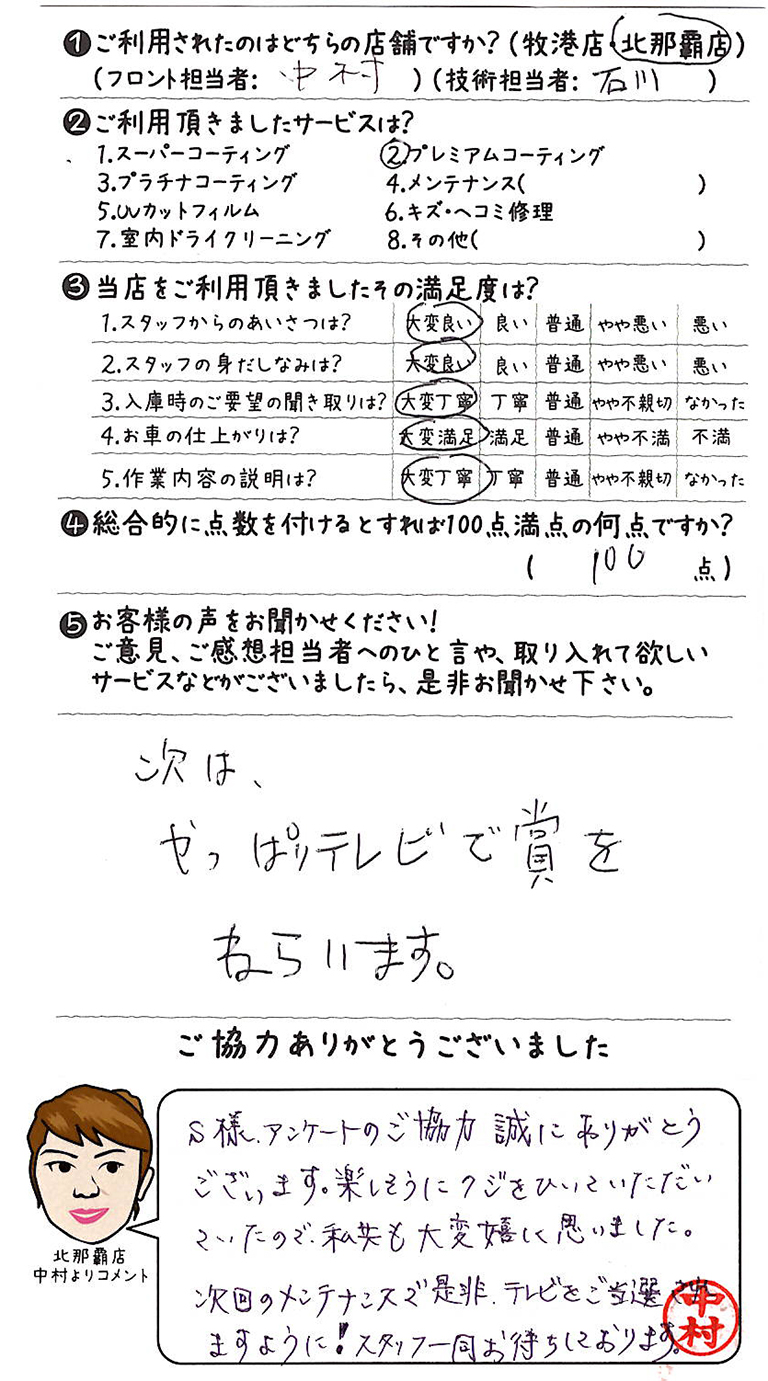 ❶ご利用されたのはどちらの店舗ですか?(牧港店・北那覇店)
(フロント担当者: 中村 )(技術担当者: 石川 )
❷ご利用頂きましたサービスは?
1.スーパーコーティング 2.プレミアムコーティング
3.プラチナコーティング 4.メンテナンス( )
5.UVカットフィルム 6.キズ・ヘコミ修理
7.室内ドライクリーニング 8.その他( )
❸当店をご利用頂きましたその満足度は?
1.スタッフからのあいさつは? 大変良い 良い 普通 やや悪い 悪い
2.スタッフの身だしなみは? 大変良い 良い 普通 やや悪い 悪い
3.入庫時のご要望の聞き取りは? 大変丁寧 丁寧 普通 やや不親切 なかった
4.お車の仕上がりは? 大変満足 満足 普通 やや不満 不満
5.作業内容の説明は? 大変丁寧 丁寧 普通 やや不親切 なかった
❹総合的に点数を付けるとすれば100点満点の何点ですか?
( 100 点)
❺お客様の声をお聞かせください!
ご意見、ご感想担当者へのひと言や、取り入れて欲しい
サービスなどがございましたら、是非お聞かせ下さい。
次は、
やっぱりテレビで賞を
ねらいます。
ご協力ありがとうございました
S様、アンケートのご協力 誠にありがとう
ございます。楽しそうにクジをひいていただい
ていたので、私共も大変嬉しく思いました。
次回のメンテナンスで是非、テレビをご当選
ますように!スタッフ一同お待ちしております。
中村
北那覇店
中村よりコメント